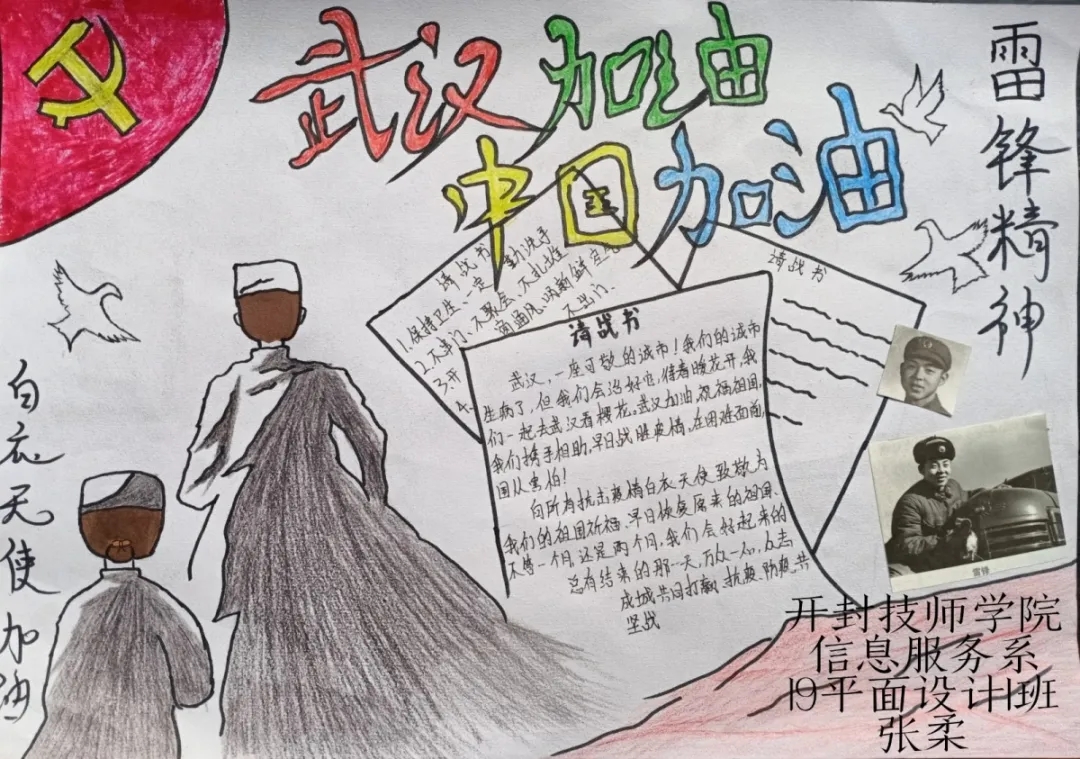 武汉加油
中国加油
雷锋精神
白衣天使加油
请战书
1.保持卫生、一定要勤洗手
2.不串门、不聚会、不扎堆
3.开窗通风、呼吸新鲜空气
4.不出门、
请战书
请战书
武汉,一座可敬的城市!我们的城市
生病了,但我们会治好它,待春暖花开,我
们一起去武汉看樱花。武汉加油,祝福祖国,
我们携手相助,早日战胜疫情。在困难面前,
国人害怕!
向所有抗击疫情白衣天使致敬为
我们的祖国祈福、早日恢复原来的祖国、
不管一个月,还是两个月,我们会好起来的
总有结束的那一天,万众一心,众志
成城共同打赢、抗疫、防疫、共
坚战
雷锋
开封技师学院
信息服务系
19平面设计1班
张柔